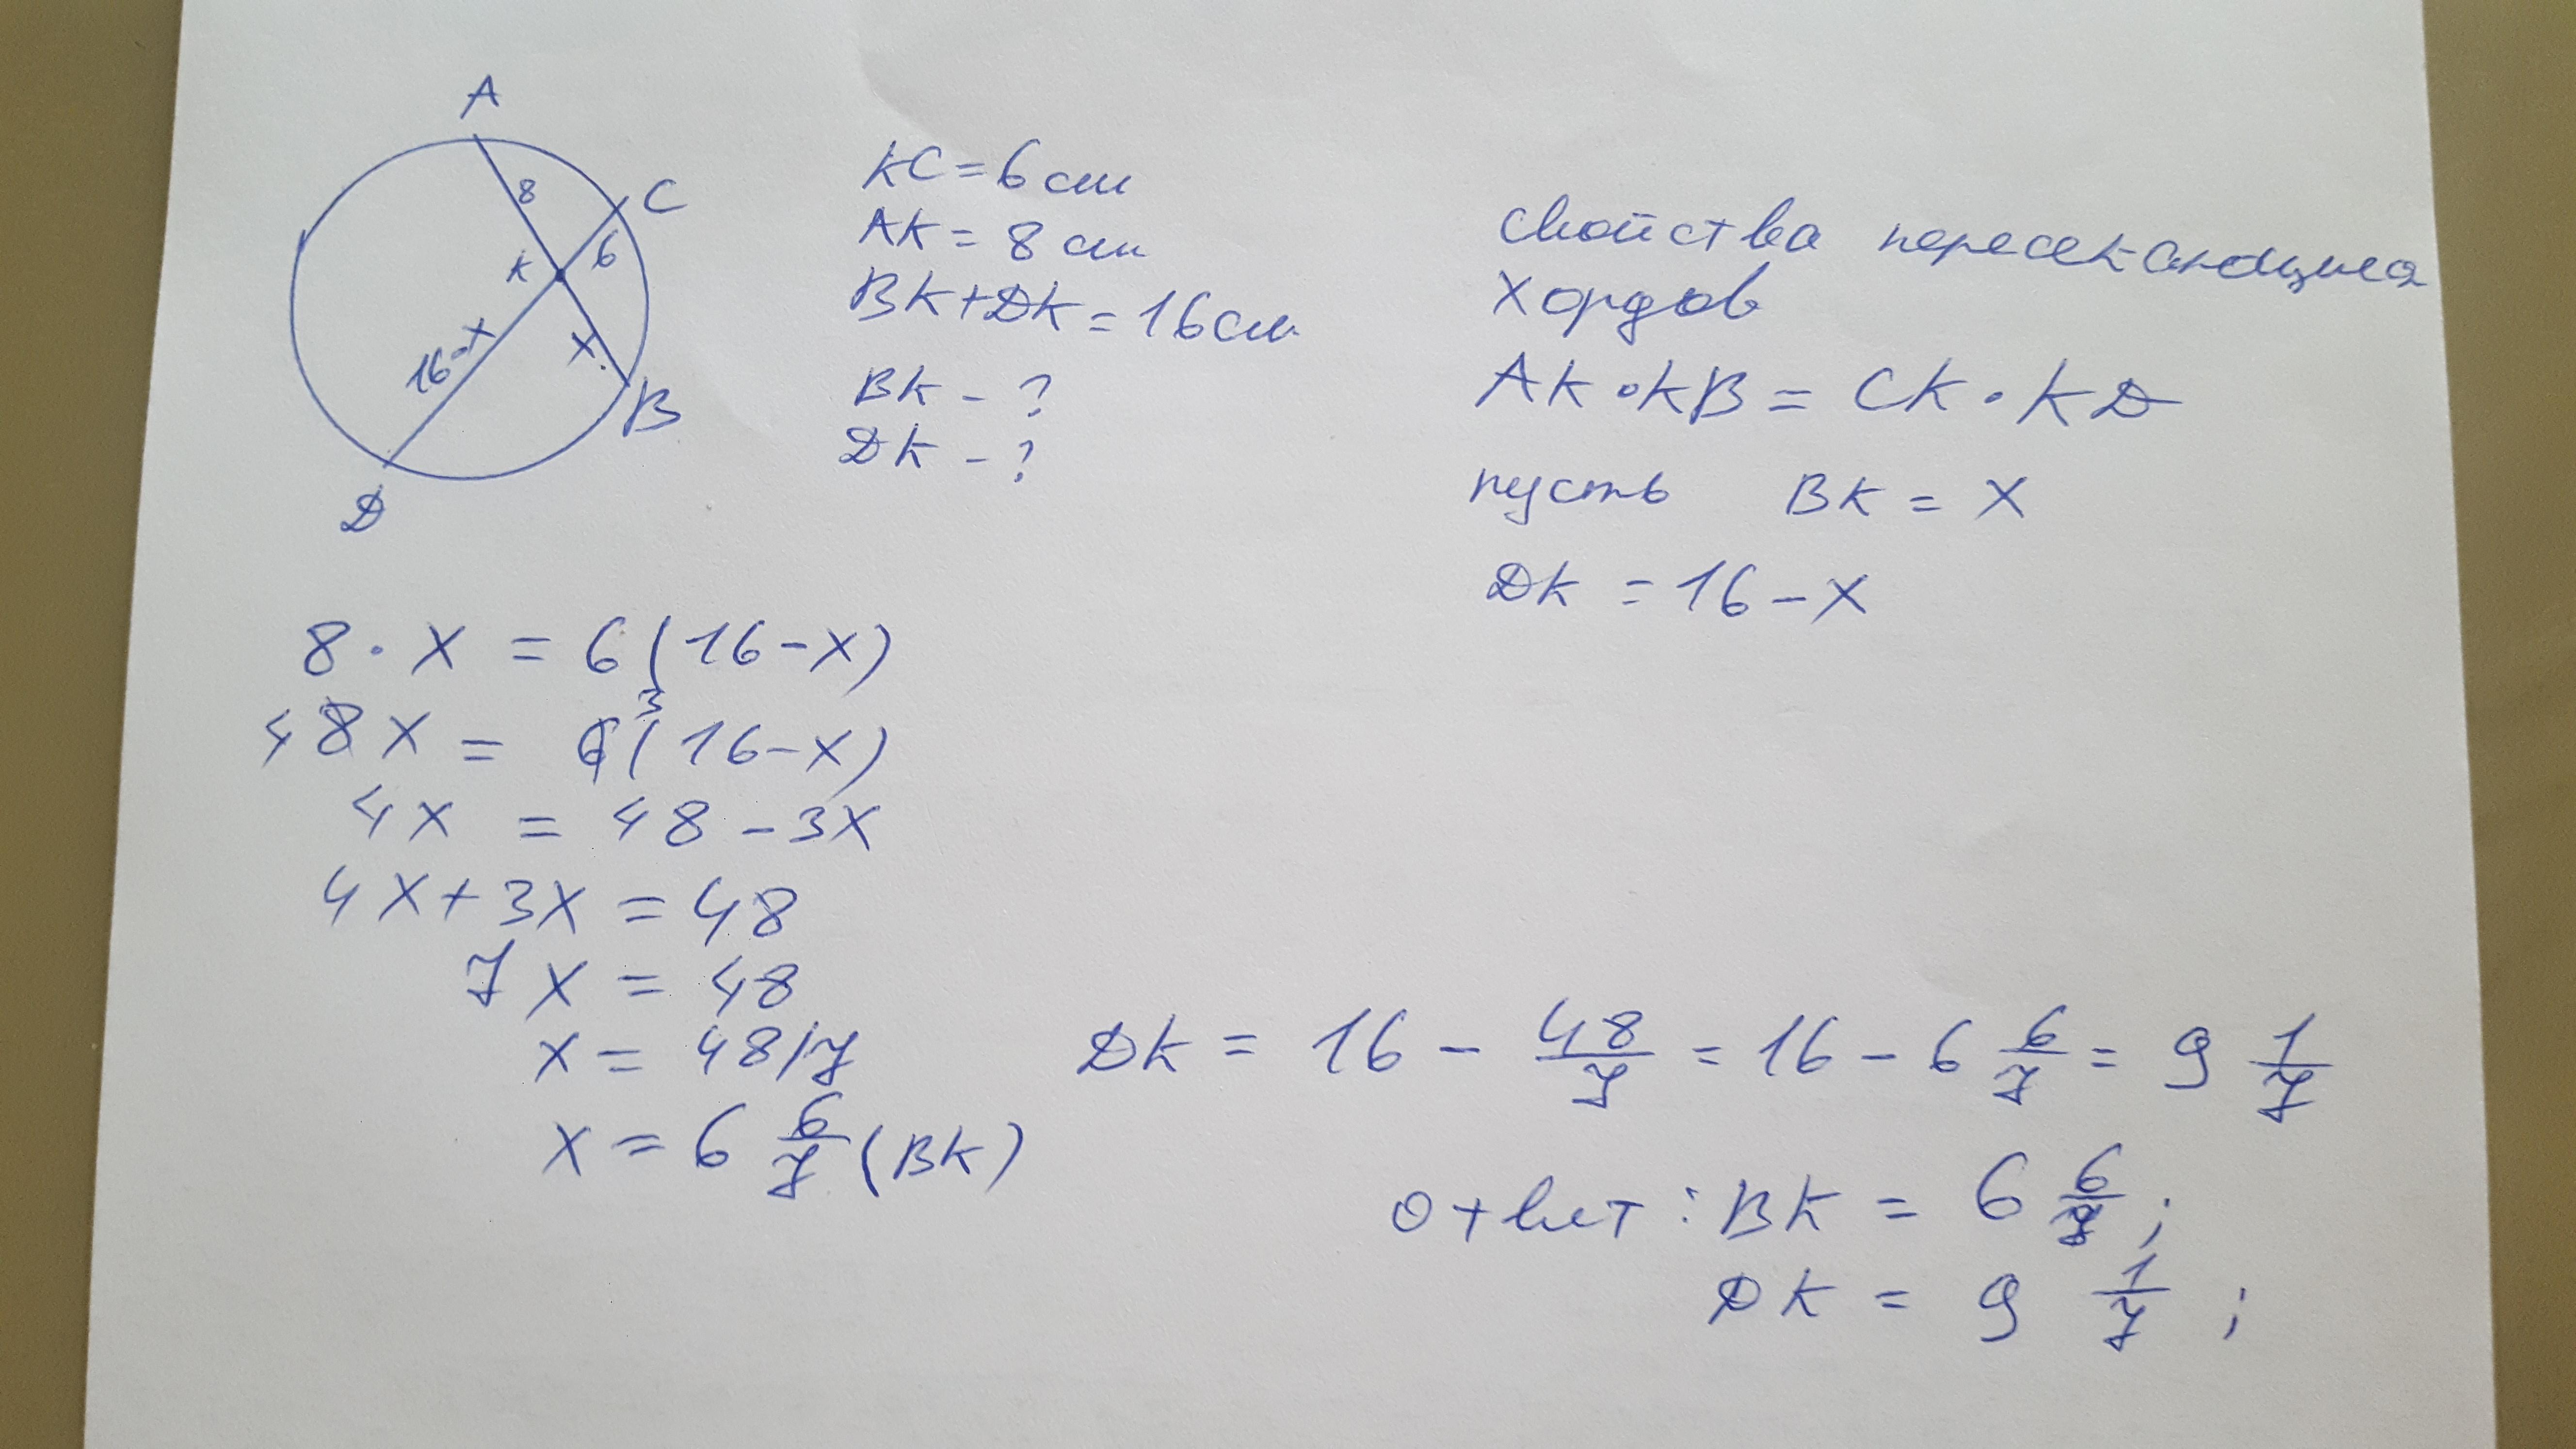 A
8
C
6
K
16-x
x
B
D
KC = 6 см
AK = 8 см
BK + DK = 16 см
BK - ?
DK - ?
свойства пересекающиеся
хордов
AK · KB = CK · KD
пусть BK = x
DK = 16 - x
8 · x = 6(16-x)
4 8 x = 6 3 (16-x)
4x = 48 - 3x
4x + 3x = 48
7x = 48
x = 48/7
x = 6 6/7 (BK)
DK = 16 - 48/7 = 16 - 6 6/7 = 9 1/7
ответ : BK = 6 6/7 ;
DK = 9 1/7 ;